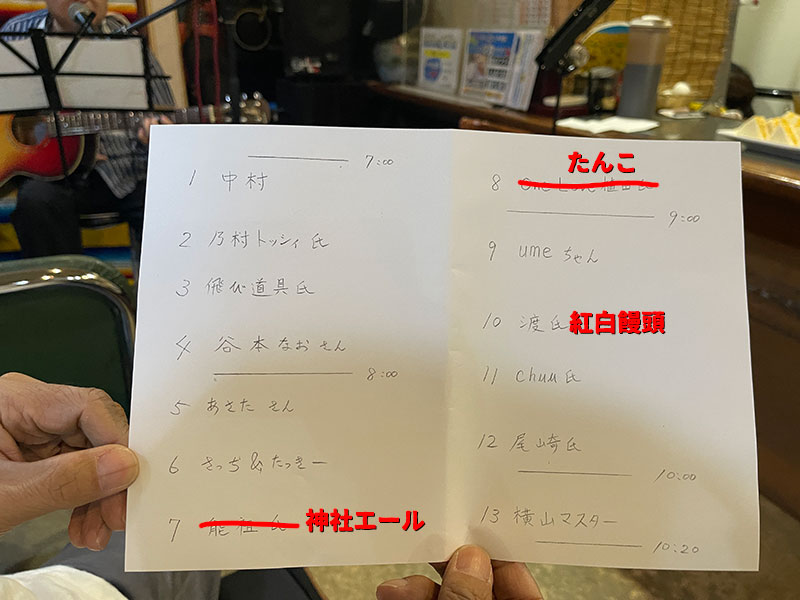 7:00
1 中村
2 乃村トッシィ氏
3 飛び道具氏
4 谷本なおさん
8:00
5 あさた さん
6 さっち&たっきー
7 能祖 氏 神社エール
たんこ
8 One
9:00
9 ume ちゃん
10 渡氏 紅白饅頭
11 chuu 氏
12 尾崎氏
10:00
13 横山マスター
10:20